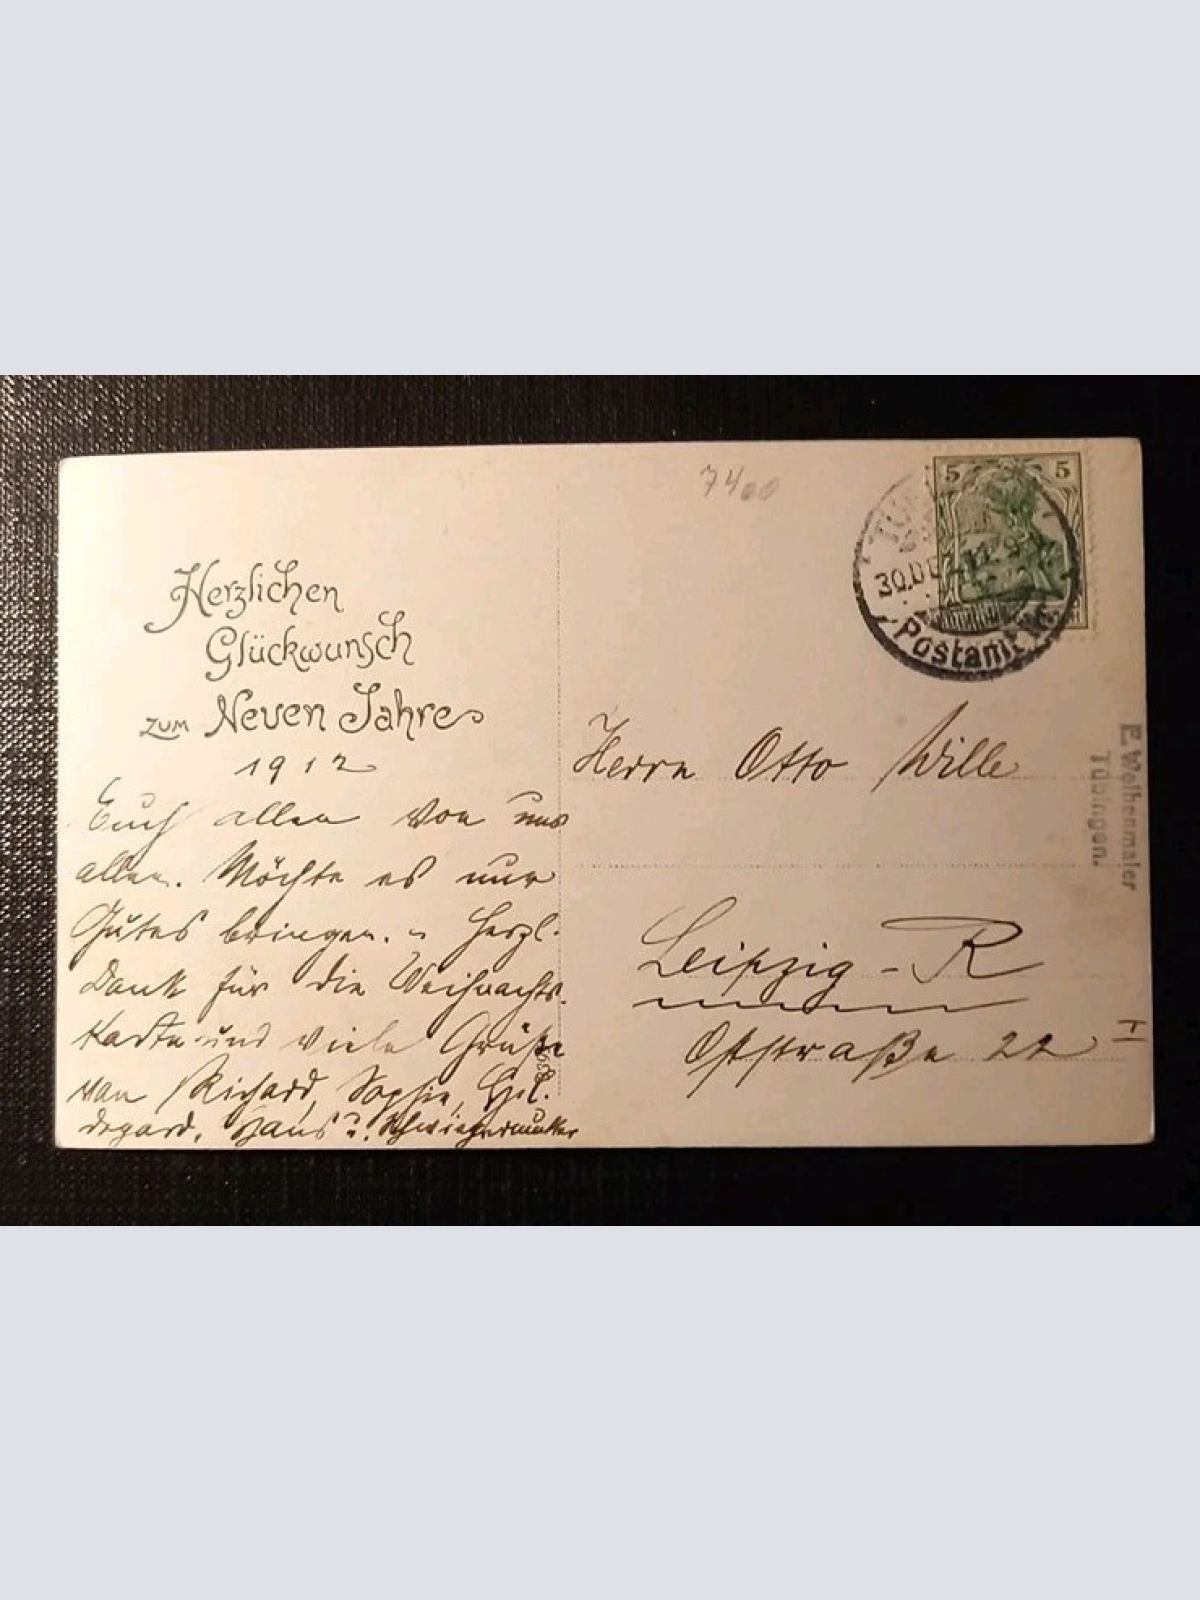 Herzlichen
Glückwunsch
zum Neuen Jahre
1912
Euch allen von uns
allen. Möchte es nur
Gutes bringen. – Herzl.
Dank für die Weihnachts-
karte und viele Grüße
von Richard, Sophie, Hil-
degard, Hans u. Schwiegermutter
7400
5 5
30.DE
Postamt
Herrn Otto Wille
Leipzig - R
Oststraße 22 I
E. Weihenmaler
Tübingen.